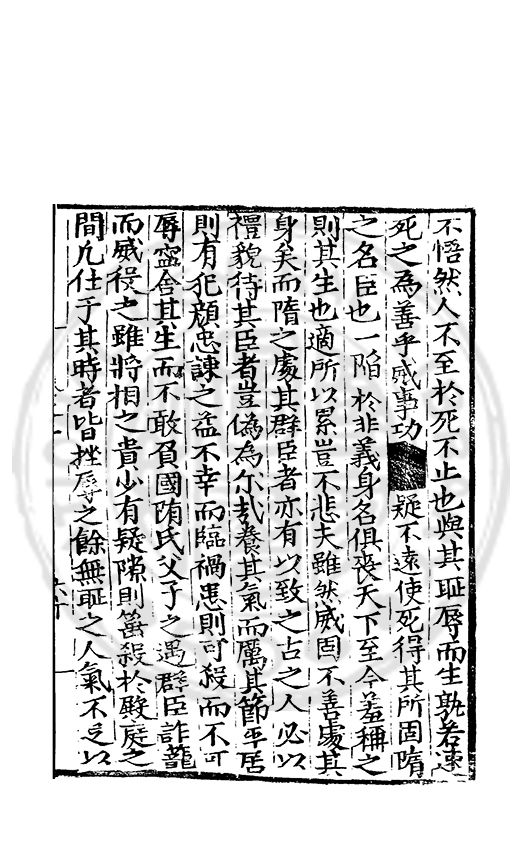 不悟然人不至於死不止也與其耻辱而生孰若速
死之為善乎威事功疑不遠使死得其所固隋
之名臣也一陷於非義身名俱喪天下至今羞稱之
則其生也適所以累豈不悲夫雖然威固不善處其
身矣而隋之處其群臣者亦有以致之古之人必以
禮貌待其臣者豈偽為尓哉養其氣而厲其節平居
則有犯顔忠諫之益不幸而臨禍患則可殺而不可
辱寧舍其生而不敢負國隋氏父子之遇群臣詐籠
而威役之雖將相之貴少有疑隙則箠殺於殿庭之
間凡仕于其時者皆挫辱之餘無耻之人氣不足以